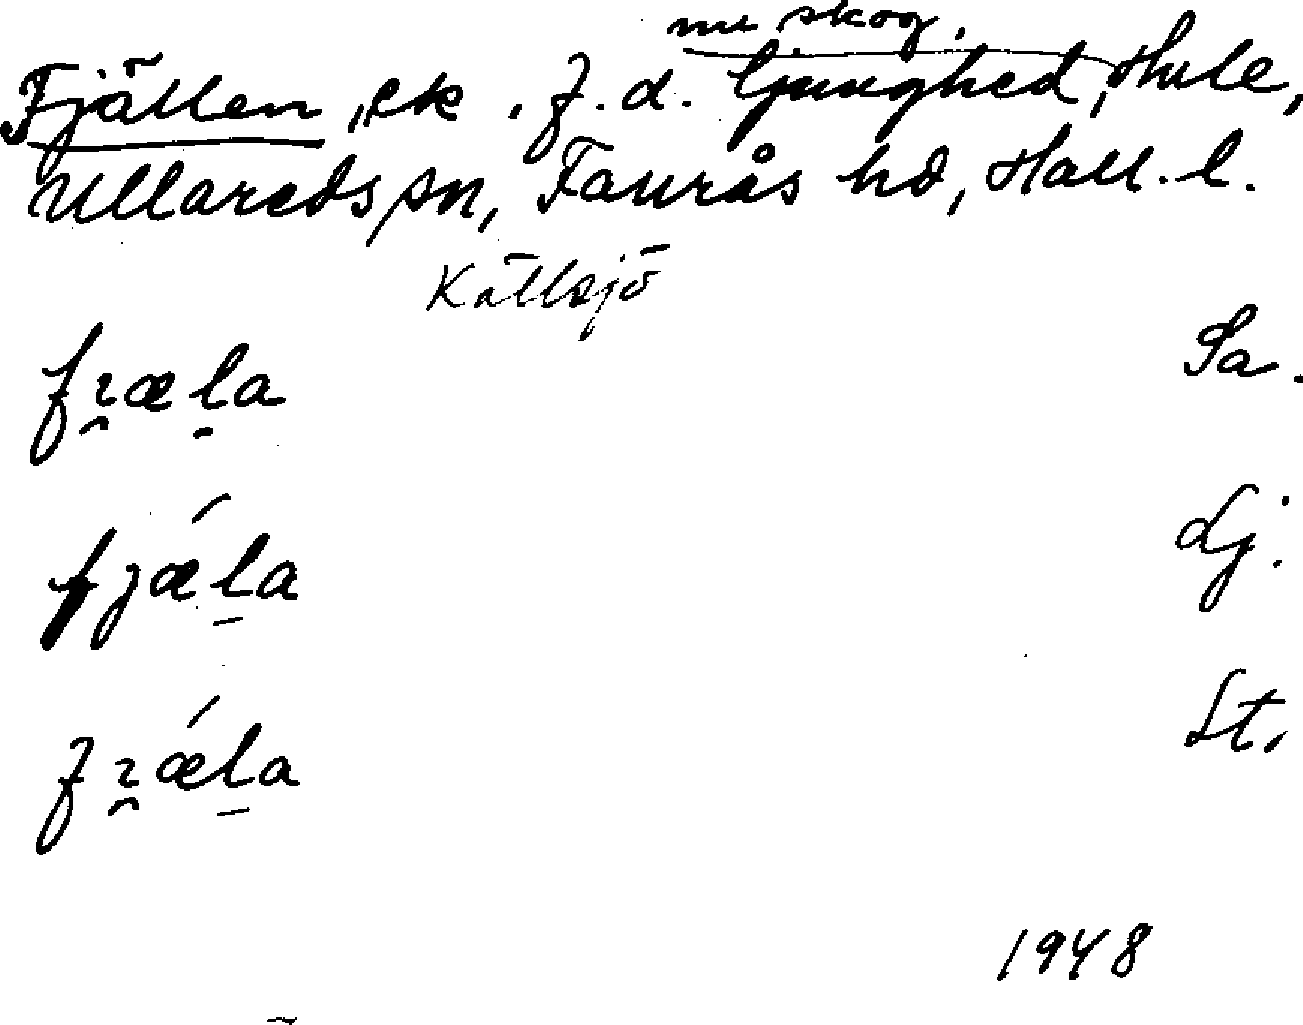 nu skog,
Fjällen, ek. f.d. ljunghed, Hule,
Ullareds sn, Faurås hd, Hall. l.
Källsjö
fɪ̯æḷa Sa.
fjǽl̠a Lj.
fɪ̯ǽl̠a St.
1948